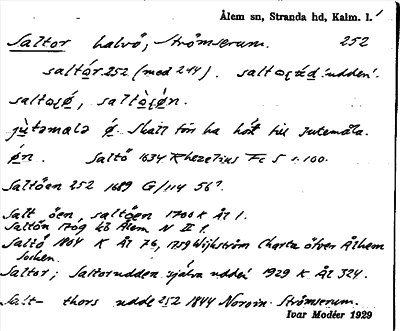 Ålem sn, Stranda hd, Kalm. l.
Saltor halvö, Strömserum. 252
saltọ́r 252 (med 244). saltọrúd 'udden'.
jùtəmala ǿ. Skall förr ha hört till Jutemåla.
ǿn. Saltö 1634 Rhezelius Fc 5 s. 100.
Saltöen 252 1689 G/114 56?.
Salt öen, saltöen 1700 K Ål 1.
Saltön 1709 kb Ålem N II 1.
Saltö 1804 K Ål 76, 1759 Wijkström Charta öfver Ålhem
Sochen.
Saltor; Saltorudden själva udden 1929 K Ål 324.
Salt- thors udde 252 1844 Norvin. Strömserum.
Ivar Modéer 1929